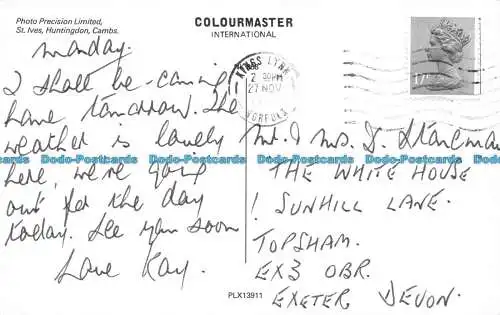 Photo Precision Limited,
St. Ives, Huntingdon, Cambs.
COLOURMASTER
INTERNATIONAL
KINGS LYNN
2 30PM
27 NOV
NORFOLK
17
Monday.
I shall be coming
home tomorrow. The
weather is lovely
here, we're going
out for the day
today. See you soon
Love Kay.
Mr & Mrs D.
THE WHITE HOUSE
1 SUNHILL LANE.
TOPSHAM.
EX3 0BR.
EXETER DEVON.
PLX13911
Dodo-Postcards Dodo-Postcards Dodo-Postcards Dodo-Postcards Dodo-Postcards